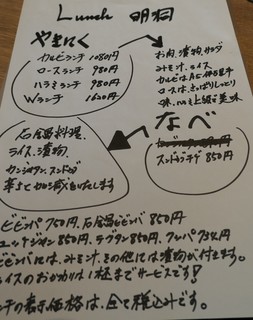 Lunch 明洞
やきにく
カルビランチ 1080円
ロースランチ 980円
ハラミランチ 980円
Wランチ 1620円
お肉、漬物、サラダ
みそ汁、ライス
カルビはA5
ロースは、さっぱりしとり
石鍋料理、
ライス、漬物
カンジャタン、スンドゥブ
辛さと
なべ
スンドゥブチゲ 850円
ビビンバ 750円、石鍋ビビンバ 850円
ユッケジャン 850円、テグタン 850円、クッパ 734円
ビビンバには、みそ汁、その他には漬物が付きます。
ライスのおかわりは1杯までサービスです!
ンチの表示価格は、全て税込みです。